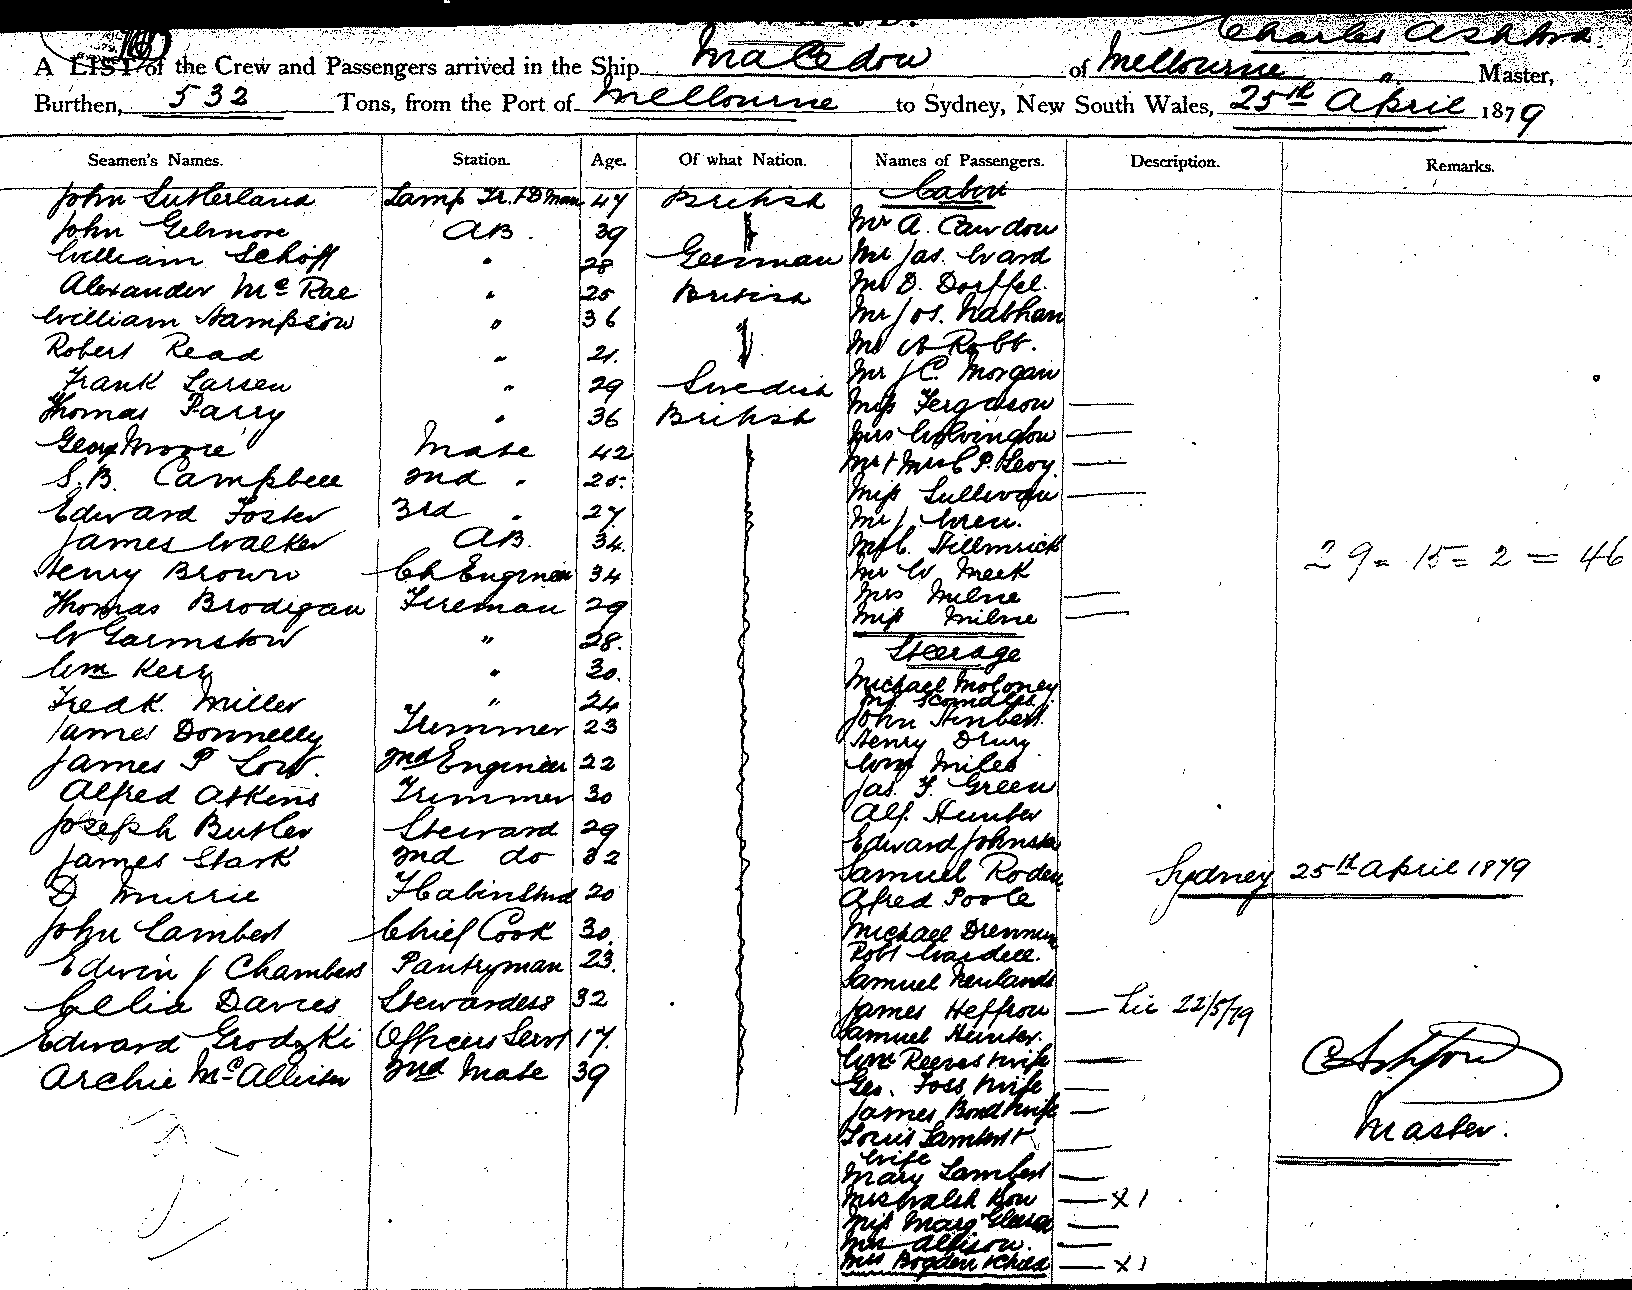 Charles Ashton
A LIST of the Crew and Passengers arrived in the Ship Macedon of Melbourne " Master,
Burthen, 532 Tons, from the Port of Melbourne to Sydney, New South Wales, 25th April 1879
Seamen's Names. Station. Age. Of what Nation. Names of Passengers. Description. Remarks.
John Sutherland Lamp Tr. & D Man 47 British
John Gilmore AB. 39
William Schöff " 28 German
Alexander McRae " 25 British
William Hampson " 36
Robert Read " 21.
Frank Larsen " 29 Swedish
Thomas Parry " 36 British
Geo Moore Mate 42
S.B. Campbell 2nd " 25.
Edward Foster 3rd " 27
James Walker AB. 34.
Henry Brown Ch Engineer 34
Thomas Brodigan Fireman 29
W Garmstow " 28.
Wm Kerr " 30.
Fredk. Miller " 24
James Donnelly Trimmer 23
James P Low. 2nd Engineer 22
Alfred Atkins Trimmer 30
Joseph Butler Steward 29
James Stark 2nd do 32
D Murrie F Cabin Stwd 20
John Lambert Chief Cook 30.
Edwin J Chambers Pantryman 23.
Celia Davies Stewardess 32
Edward Grodzki Officers Servt 17.
Archie McAllister 2nd Mate 39
Cabin
Mr A. Cawdow
Mr Jas. Ward
Mr D. Dorffel.
Mr Jos. Nathan
Mr A Robb.
Mr J C. Morgan
Miss Ferguson
Mrs Wolvington
Mr & Mrs C P. Levy
Miss Sullivan
Mr J. Wren.
C. Hillmrick
Mr W Meek
Mrs Milne
Miss Milne
Steerage
Michael Moloney
John
Henry Drury
Wm Miles
Jas. F. Green
Alf. Hunter
Edward Johnston
Samuel Roden
Alfred Poole
Michael Drennan
Robt Wardell.
Samuel Newlands
James Heffron — Lic 22/5/79
Samuel Hunter.
Wm Reeves & wife
Geo. Foss & wife
James Bond & wife
Louis Lambert &
Wife
Mary Lambert
Mrs Walsh — X 1
Miss Marg Gleeson
Mrs Allison.
Mrs Bogden & Child — X 1
29 = 15 = 2 = 46
Sydney 25th April 1879
C Ashton
Master.